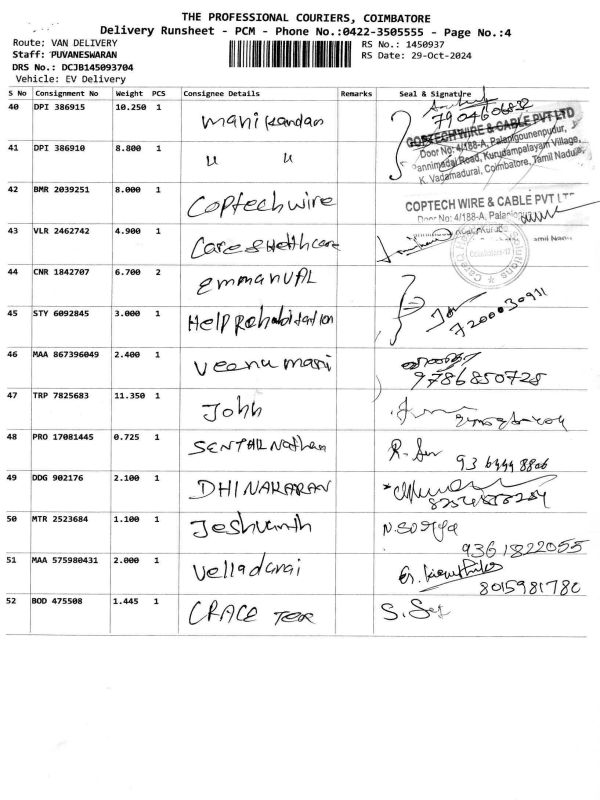 THE PROFESSIONAL COURIERS, COIMBATORE
Delivery Runsheet - PCM - Phone No.:0422-3505555 - Page No.:4
Route: VAN DELIVERY
Staff: PUVANESWARAN
DRS No.: DCJB145093704
Vehicle: EV Delivery
RS No.: 1450937
RS Date: 29-Oct-2024
S No Consignment No Weight PCS Consignee Details Remarks Seal & Signature
40 DPI 386915 10.250 1 Manikandan 7904606832
COPTECH WIRE & CABLE PVT LTD
Door No: 4/188-A, Palanigounenpudur,
Pannimadai Road, Kurudampalayam Village,
K. Vadamadurai, Coimbatore, Tamil Nadu
41 DPI 386910 8.800 1 " "
42 BMR 2039251 8.000 1 Coptech wire
COPTECH WIRE & CABLE PVT LTD
Door No: 4/188-A,
43 VLR 2462742 4.900 1 Care & Healthcare
44 CNR 1842707 6.700 2 EMMANUAL
45 STY 6092845 3.000 1 Help Rehabitation 7200030931
46 MAA 867396049 2.400 1 Veenu mani 9786850728
47 TRP 7825683 11.350 1 John
48 PRO 17081445 0.725 1 SENTHIL Nathan R. Sen
49 DDG 902176 2.100 1 DHINAKARAN
50 MTR 2523684 1.100 1 Jeshvanth N. Soorya
9361822055
51 MAA 575980431 2.000 1 Velladurai
8015981780
52 BOD 475508 1.445 1 CRACE TER